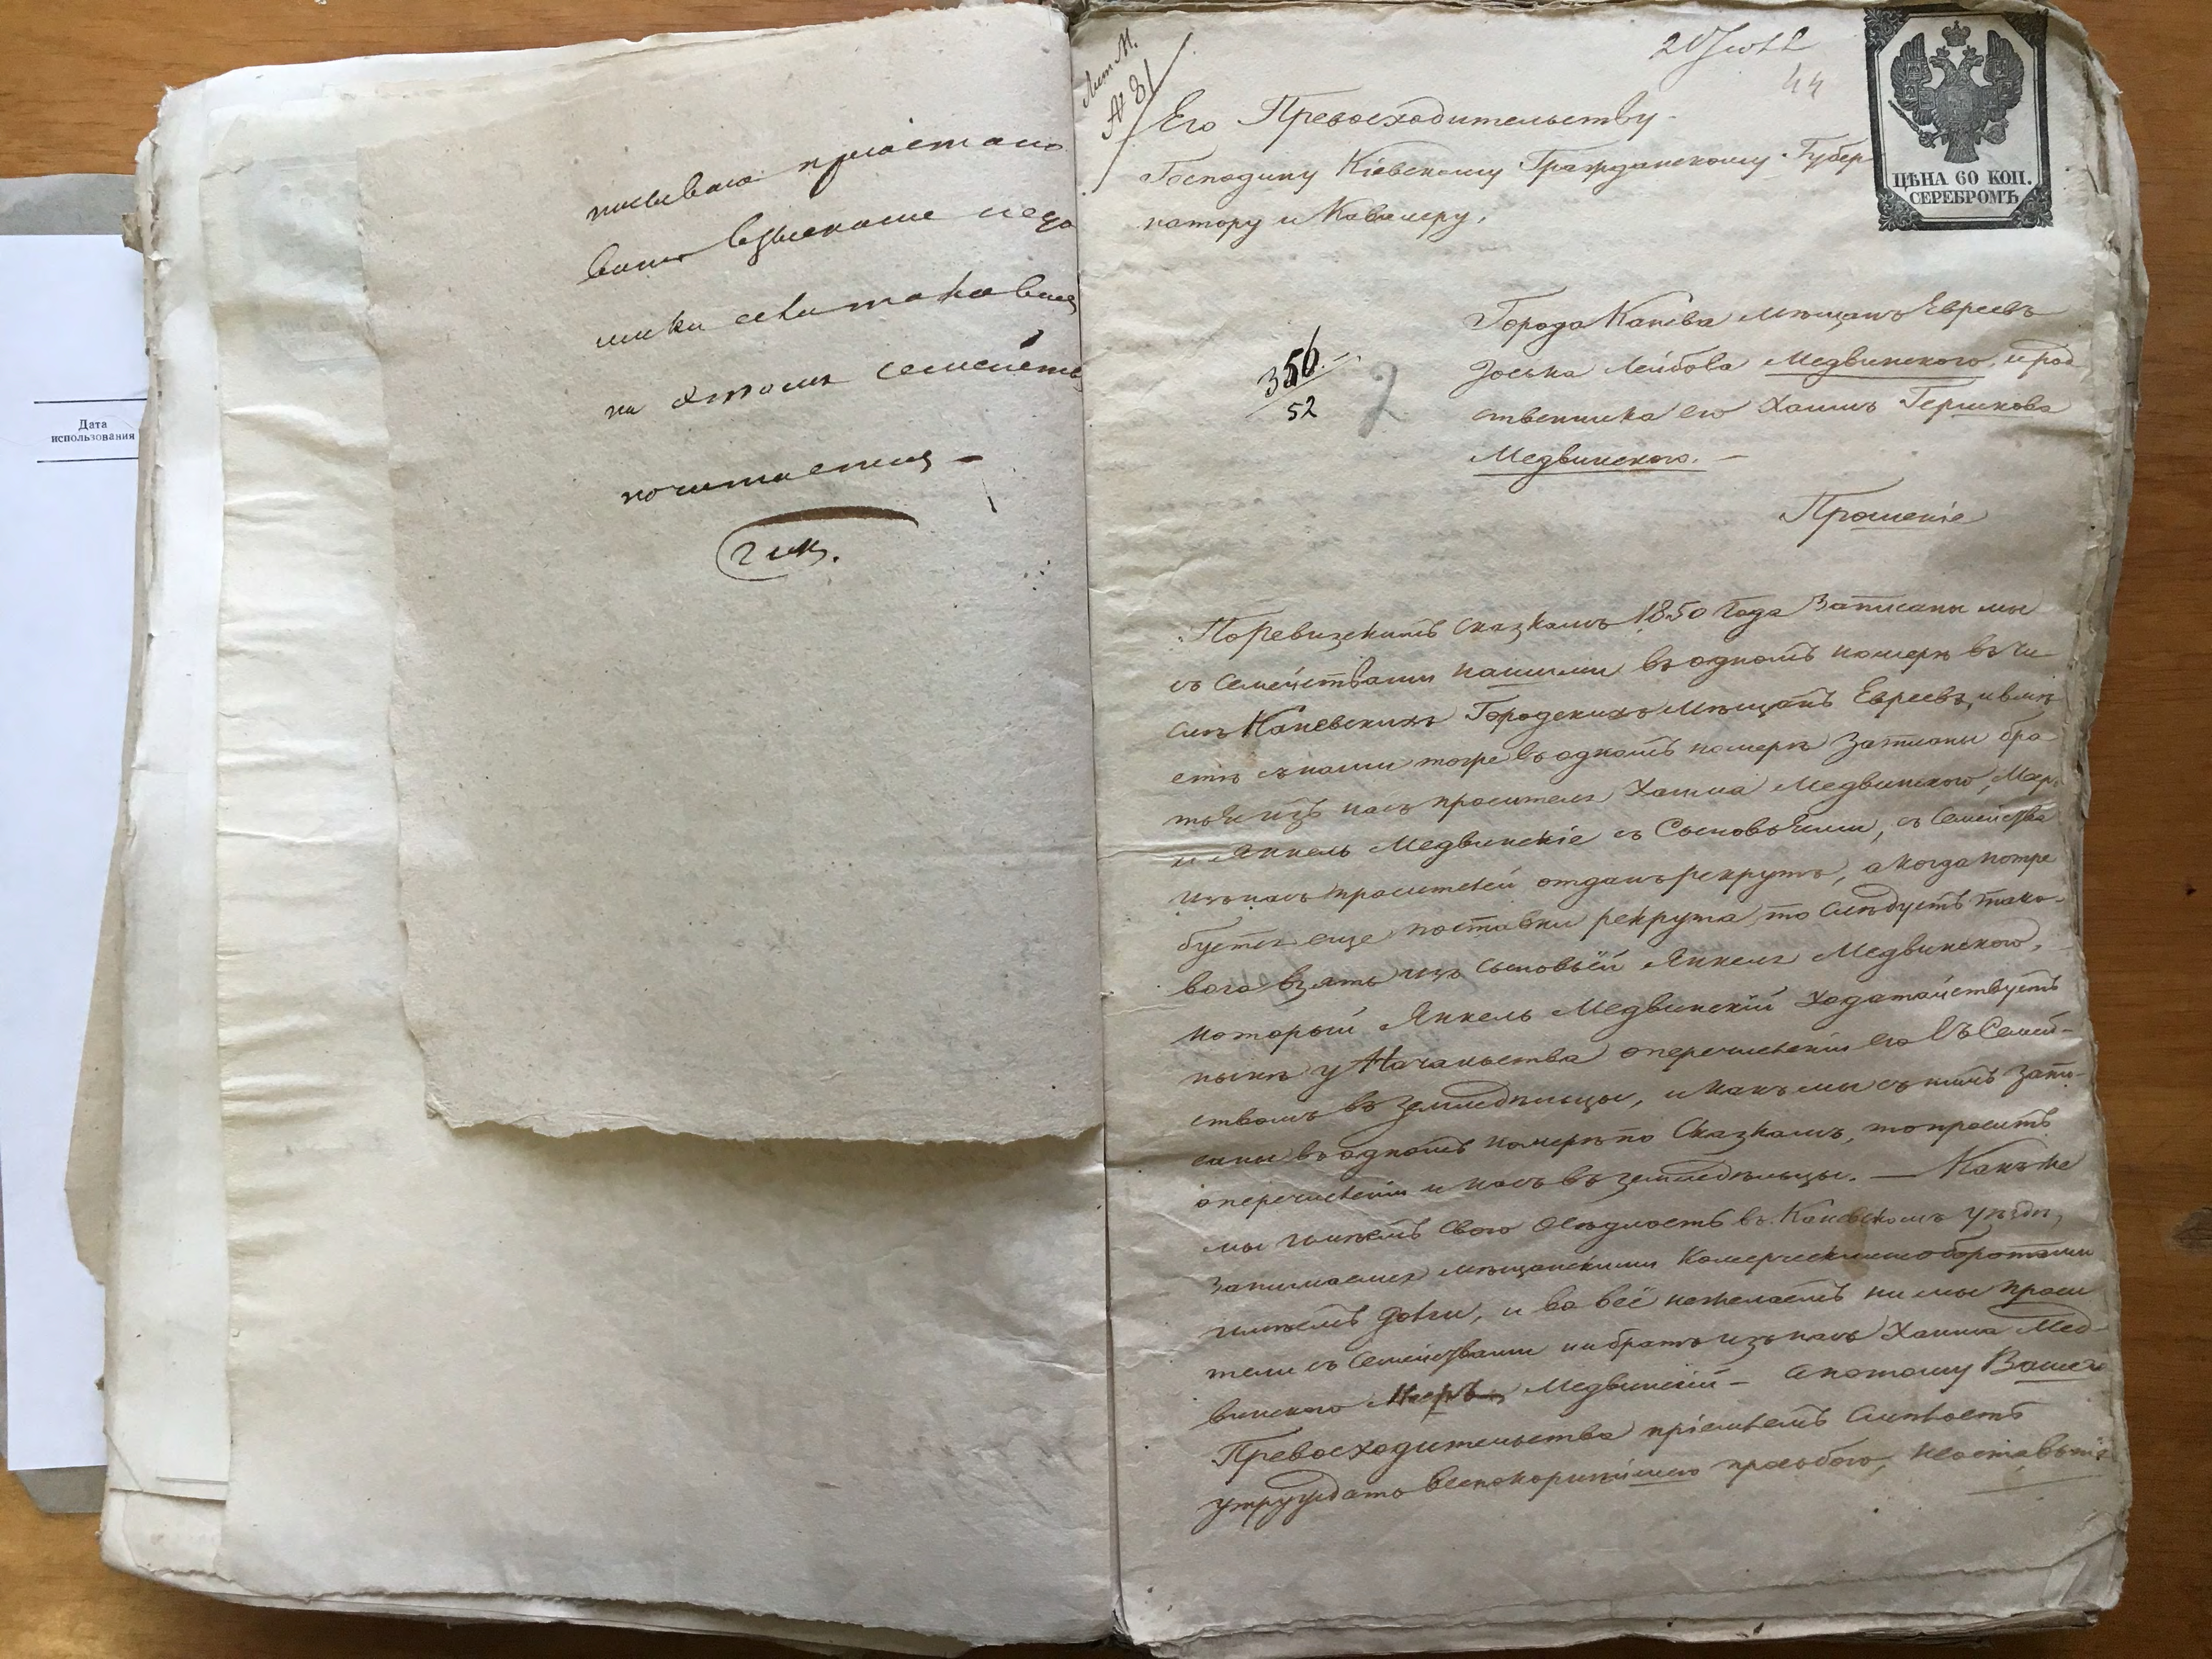 Дата
использования
взыскание недо
на этомъ семейств
почитается –
Лит М.
№ 81
44
ЦѢНА 60 КОП.
СЕРЕБРОМЪ.
Его Превосходительству
Господину Кіевскому Гражданскому Губер
натору и Кавалеру,
356
52
2
Города Канева мѣщанъ Евреевъ
Іоська Лейбова Медвинского, и род
ственника его Хаима Гершкова
Медвинского. –
Прошеніе
По ревизскимъ сказкамъ 1850 года записаны мы
съ семействами нашими въ одномъ номерѣ въ чи
слѣ Каневскихъ Городскихъ мѣщанъ Евреевъ, и вмѣ
стѣ съ нами тоже въ одномъ номерѣ записаны бра
тья изъ насъ просителя Хаима Медвинского, Мер
и Янкель Медвинскіе съ Сыновьями, съ Семейства
изъ насъ просителей отданъ рекрутъ, а когда потре
буется еще поставки рекрута, то слѣдуетъ тако-
вого взять изъ сыновьей Янкеля Медвинского,
который Янкель Медвинскій ходатайствуетъ
нынѣ у Начальства о перечисленіи его съ Семей-
ствомъ въ земледѣльцы, и какъ мы съ нимъ запи-
саны въ одномъ номерѣ по Сказкамъ, то проситъ
о перечисленіи и насъ въ земледѣльцы. — Какъ же
мы имѣемъ свою осѣдлость въ Каневскомъ уѣздѣ,
занимаемся мѣщанскими Комерческими оборотами
имѣемъ долги, и во всё нежелаемъ ни мы проси
тели съ Семействами ни братъ изъ насъ Хаима Мед-
винского Медвинскій – а потому Вашего
Превосходительства пріемлемъ смѣлость
утруждать всепокорнѣйшею прозьбою, неоставьте